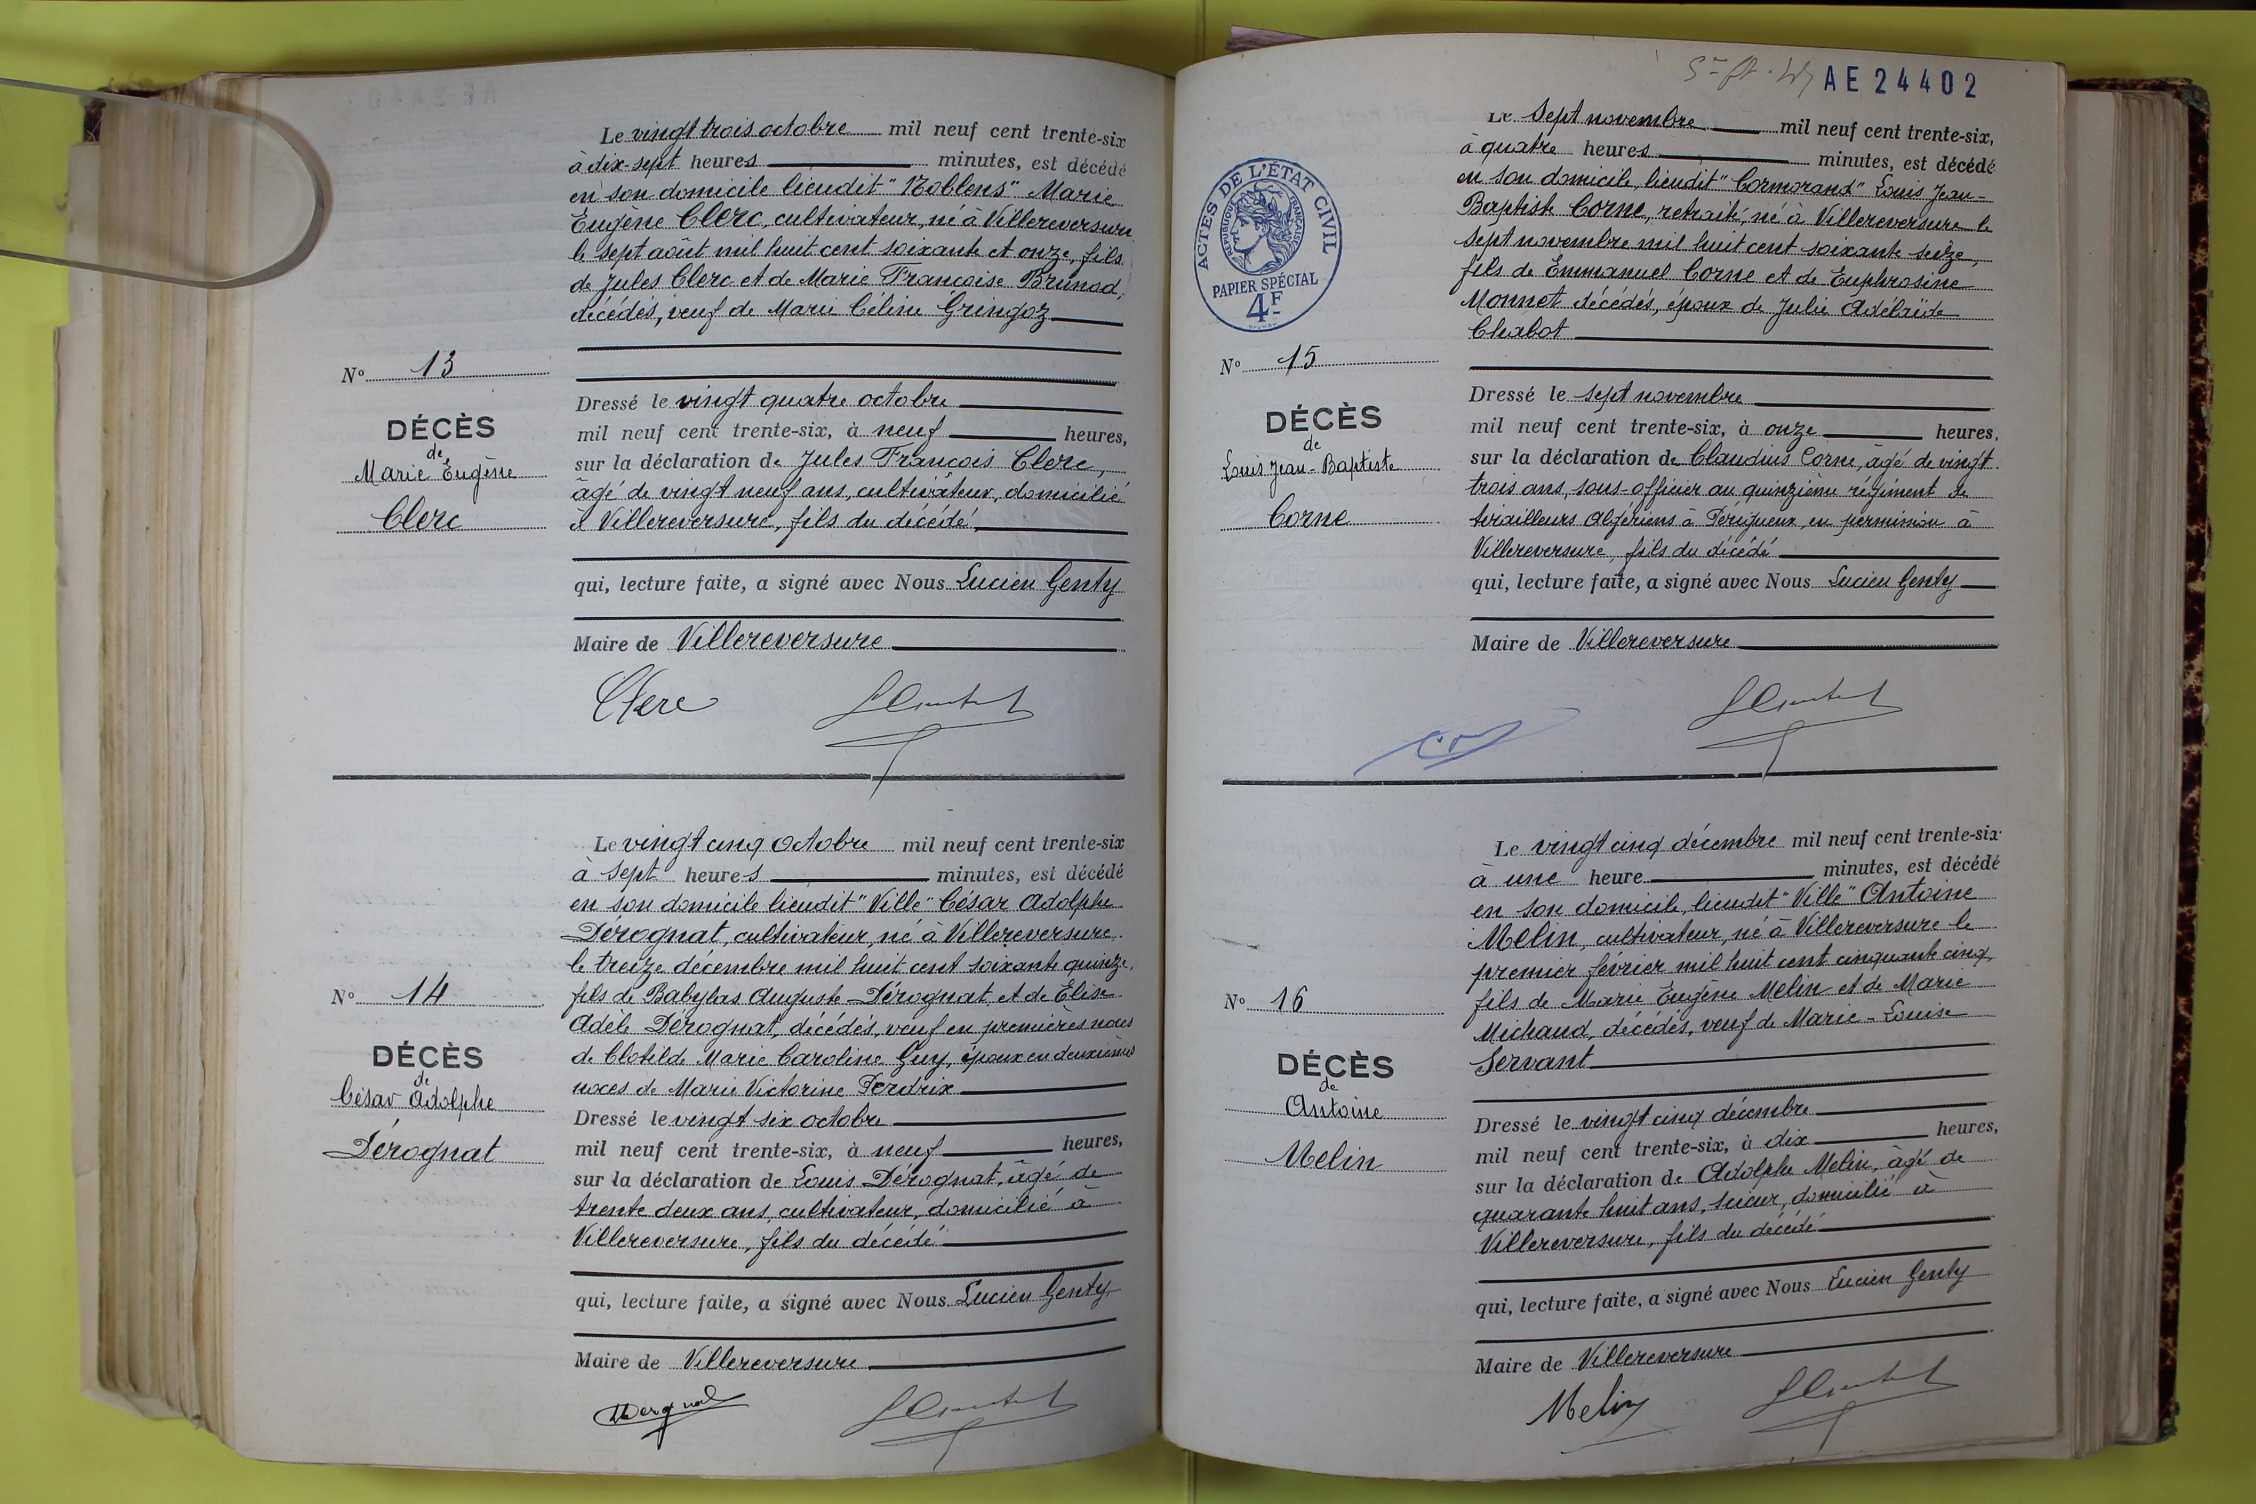 Le vingt trois octobre mil neuf cent trente-six
à dix-sept heures minutes, est décédé
en son domicile lieudit "Noblens" Marie
Eugène Clerc, cultivateur, né à Villereversure
le sept août mil huit cent soixante et onze, fils
de Jules Clerc et de Marie Françoise Brunod,
décédés, veuf de Marie Céline Gringoz
N° 13
DÉCÈS
de
Marie Eugène
Clerc
Dressé le vingt quatre octobre
mil neuf cent trente-six, à neuf heures,
sur la déclaration de Jules François Clerc,
âgé de vingt neuf ans, cultivateur, domicilié
à Villereversure, fils du décédé,
qui, lecture faite, a signé avec Nous Lucien Genty
Maire de Villereversure
Clerc
Le vingt cinq octobre mil neuf cent trente-six
à sept heures minutes, est décédé
en son domicile lieudit "Ville" César Adolphe
Dérognat, cultivateur, né à Villereversure,
le treize décembre mil huit cent soixante quinze,
fils de Babylas Auguste Dérognat et de Élise
Adèle Dérognat, décédés, veuf en premières noces
de Clotilde Marie Caroline Guy, époux en deuxièmes
noces de Marie Victorine Perdrix
N° 14
DÉCÈS
de
César Adolphe
Dérognat
Dressé le vingt six octobre
mil neuf cent trente-six, à neuf heures,
sur la déclaration de Louis Dérognat, âgé de
trente deux ans, cultivateur, domicilié à
Villereversure, fils du décédé
qui, lecture faite, a signé avec Nous Lucien Genty
Maire de Villereversure
Derognat
AE 24402
Le sept novembre mil neuf cent trente-six,
à quatre heures minutes, est décédé
en son domicile, lieudit "Cormorand" Louis Jean-
Baptiste Corne, retraité, né à Villereversure le
sept novembre mil huit cent soixante seize,
fils de Emmanuel Corne et de Euphrosine
Monnet décédés, époux de Julie Adélaïde
Chabot
ACTES DE L'ÉTAT CIVIL
RÉPUBLIQUE FRANÇAISE
PAPIER SPÉCIAL
4F
N° 15
DÉCÈS
de
Louis Jean-Baptiste
Corne
Dressé le sept novembre
mil neuf cent trente-six, à onze heures,
sur la déclaration de Claudius Corne, âgé de vingt
trois ans, sous-officier au quinzième régiment de
tirailleurs algériens à Périgueux, en permission à
Villereversure, fils du décédé
qui, lecture faite, a signé avec Nous Lucien Genty
Maire de Villereversure
Le vingt cinq décembre mil neuf cent trente-six
à une heure minutes, est décédé
en son domicile, lieudit "Ville" Antoine
Melin, cultivateur, né à Villereversure le
premier février mil huit cent cinquante cinq,
fils de Marie Eugène Melin et de Marie
Michaud, décédés, veuf de Marie-Louise
Servant
N° 16
DÉCÈS
de
Antoine
Melin
Dressé le vingt cinq décembre
mil neuf cent trente-six, à dix heures,
sur la déclaration de Adolphe Melin, âgé de
quarante huit ans, scieur, domicilié à
Villereversure, fils du décédé
qui, lecture faite, a signé avec Nous Lucien Genty
Maire de Villereversure
Melin